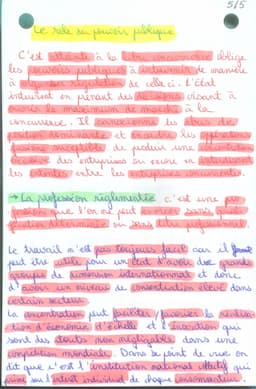 5/5
Le role du pouvoir publique
C'est attente à la libre concurrence oblige
les pouvoirs publiques à intervenir de manière
à régulation de celle ci. L'État
intervient en prenant des visant à
le maximum de à la
concurrence. Il sanctionne les abus de
position dominante et les opérations
fusion susceptible de produire une
des entreprises ou encore en interdisant
les ententes entre les entreprises concurrentes.
→ La profession réglementée c'est une pro
fession que l'on ne peut exercer sans
déterminée ou sans titre professionnel
Le travail n'est pas toujours facile car il
peut être utile pour un état d'avoir de grands
groupes de dimension internationnal et donc
d'avoir un niveau de consentration élevé dans
certain secteur.
La concentration peut faciliter / favoriser la réalisa
tion d'économie d'échelle et d' qui
sont des atouts non négligeables dans une
compétition mondiale. Dans ce point de vue on
dit que c'est l'
sur l'intérêt individuel de chaque consommateur